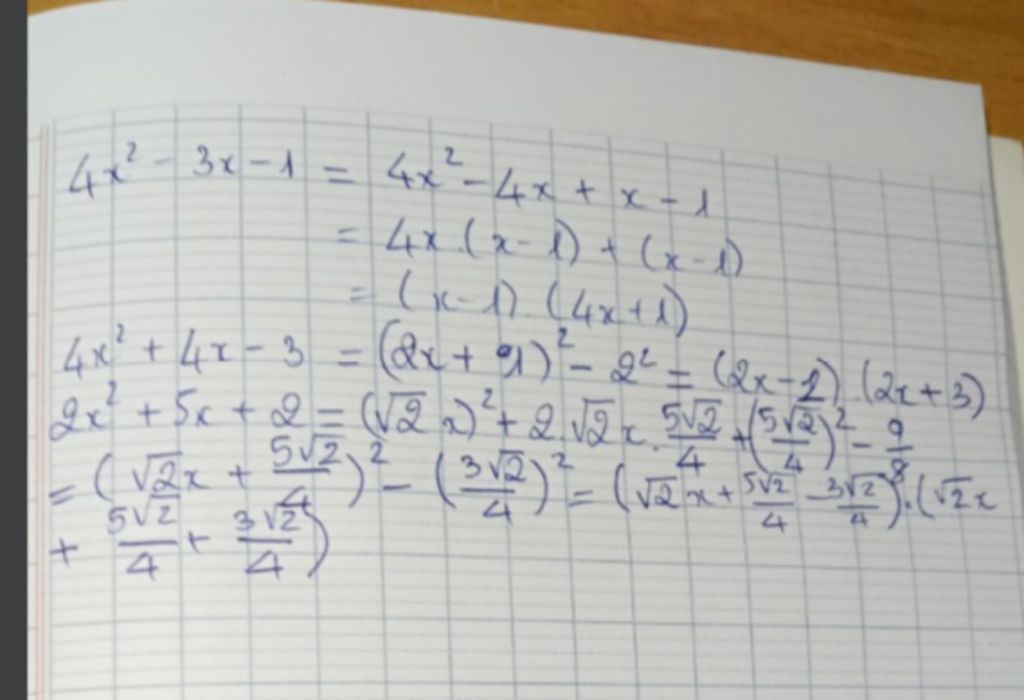 4x² - 3x - 1 = 4x² - 4x + x - 1
= 4x.(x-1) + (x-1)
= (x-1).(4x+1)
4x² + 4x - 3 = (2x + 1)² - 2² = (2x-1).(2x+3)
2x² + 5x + 2 = (√2 x)² + 2.√2x.5√2/4 + (5√2/4)² - 9/8
= (√2x + 5√2/4)² - (3√2/4)² = (√2x + 5√2/4 - 3√2/4).(√2x
+ 5√2/4 + 3√2/4)